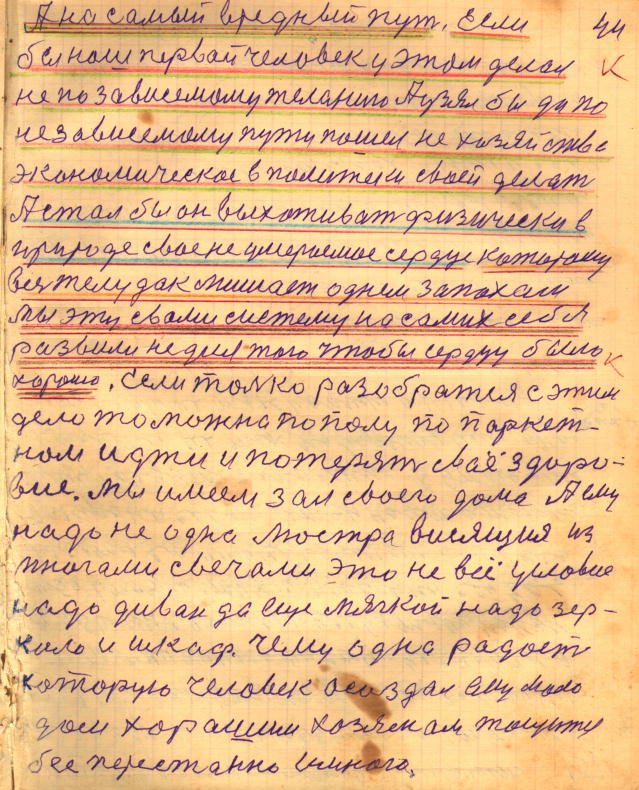 А на самый вредный пут. Если 44
был наш первай человек у этом делал
не по зависемому желанию А узял бы да по
незовисемому пути пошел не хозяйства
экономическое в политеки своей делат
А стал бы он выхаживат физическа в
природе свое не умераемое сердце катораму
все телу дак мишает однем запахам
мы эту свами систему на самих себя
развили не для того чтобы сердцу было К
хорошо. Если толко разобратся с этим
дело то можна по полу по паркет-
ном идти и потерят своё здоро-
вие. Мы имеем зал своего дома А ему
надо не одна люстра висящия из
многами свечами это не всё условие
надо диван да еще мягкой надо зер-
коло и шкаф. Чему одна радост
которую человек осоздал ему мало
дом хорашим хозяенам
бес перестанно и много.